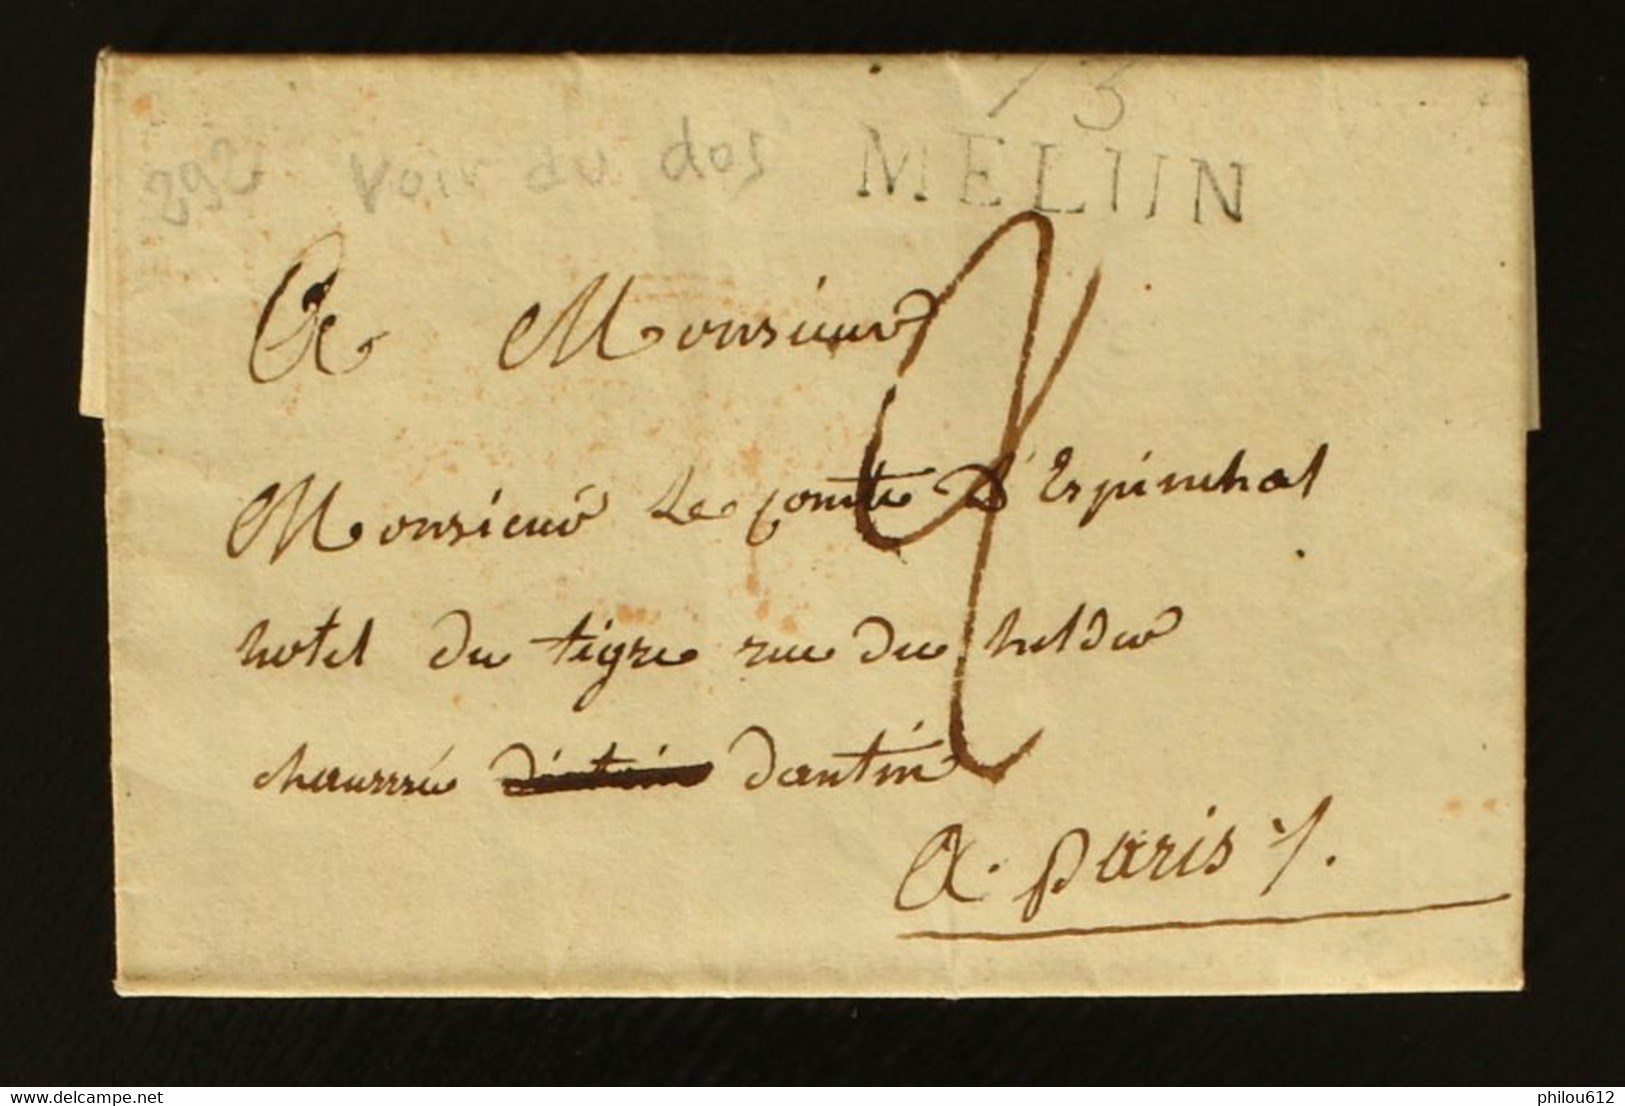 292 Voir au dos MELUN
A Monsieur
Monsieur Le comte d'Espinchal
hotel du tigre rue du helder
chaussée d'antin dantin
A paris
www.delcampe.net
philou612